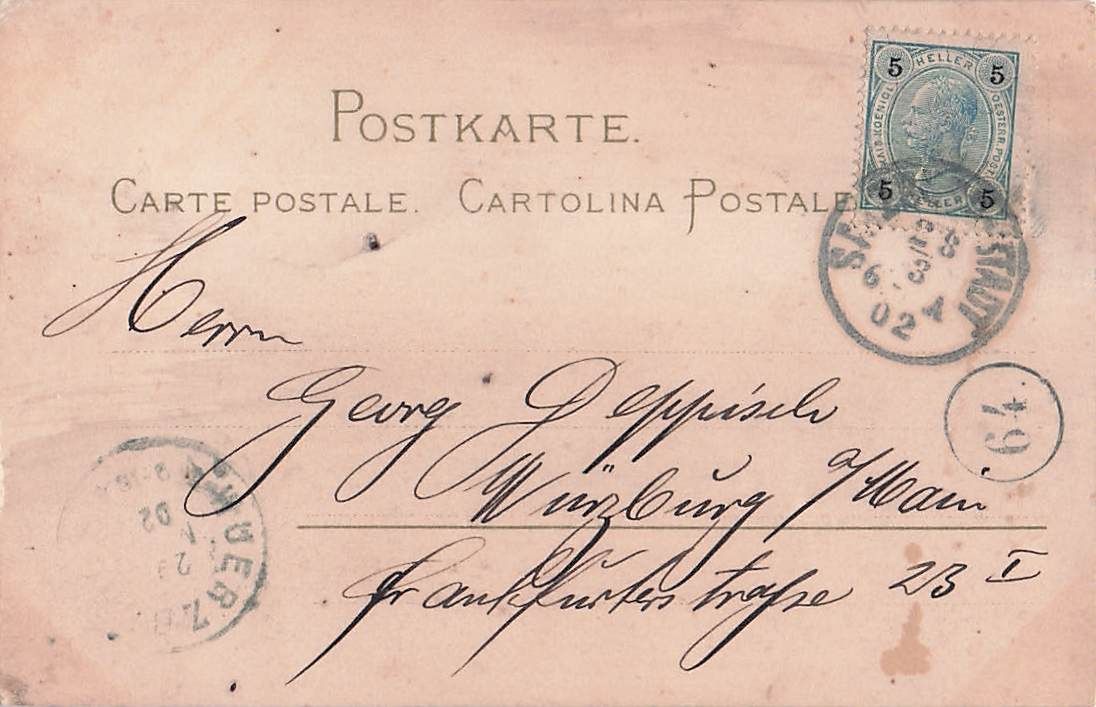 POSTKARTE.
CARTE POSTALE. CARTOLINA POSTALE
5 HELLER 5
KAIS. KOENIGL. OESTERR. POST
5 HELLER 5
STADT
02
Herrn
Georg Deppisch
Würzburg a/Main
Frankfurterstraße 23 I
64.
WUERZ
02